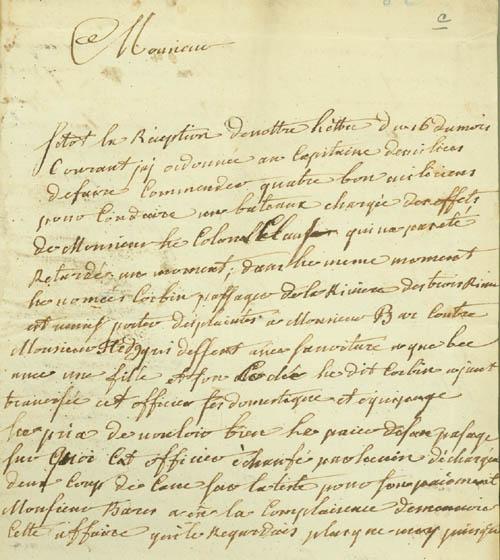 c
Monsieur
sitot la Reception de vottre Lettre du 16 du mois
Courant jai ordonnée au Capitaine de milices
de faire Commender quatre bon miliciens
pour Conduire un bateaux chargée des effets
de Monsieur le Colonel Claus qui na pas eté
Retardée un moment; dans le meme moment
le nomées Corbin passager de la Riviere des trois Riv
est venus porter des plaintes a Monsieur Bar Contre
Monsieur qui dessent avec sa voiture a quebec
avec une fille et son le dit Corbin ajant
traversée cet officier ses domestique et equipage
le pria de vouloir bien le paier de son pasage
sur quoi Cet officier echaufé par le vin decharga
deux Coup de Cane sur la teste pour son paiement
Monsieur Bar a eu la Complaisance de
Cette affaire qui le Regardais plus que moy puisqu